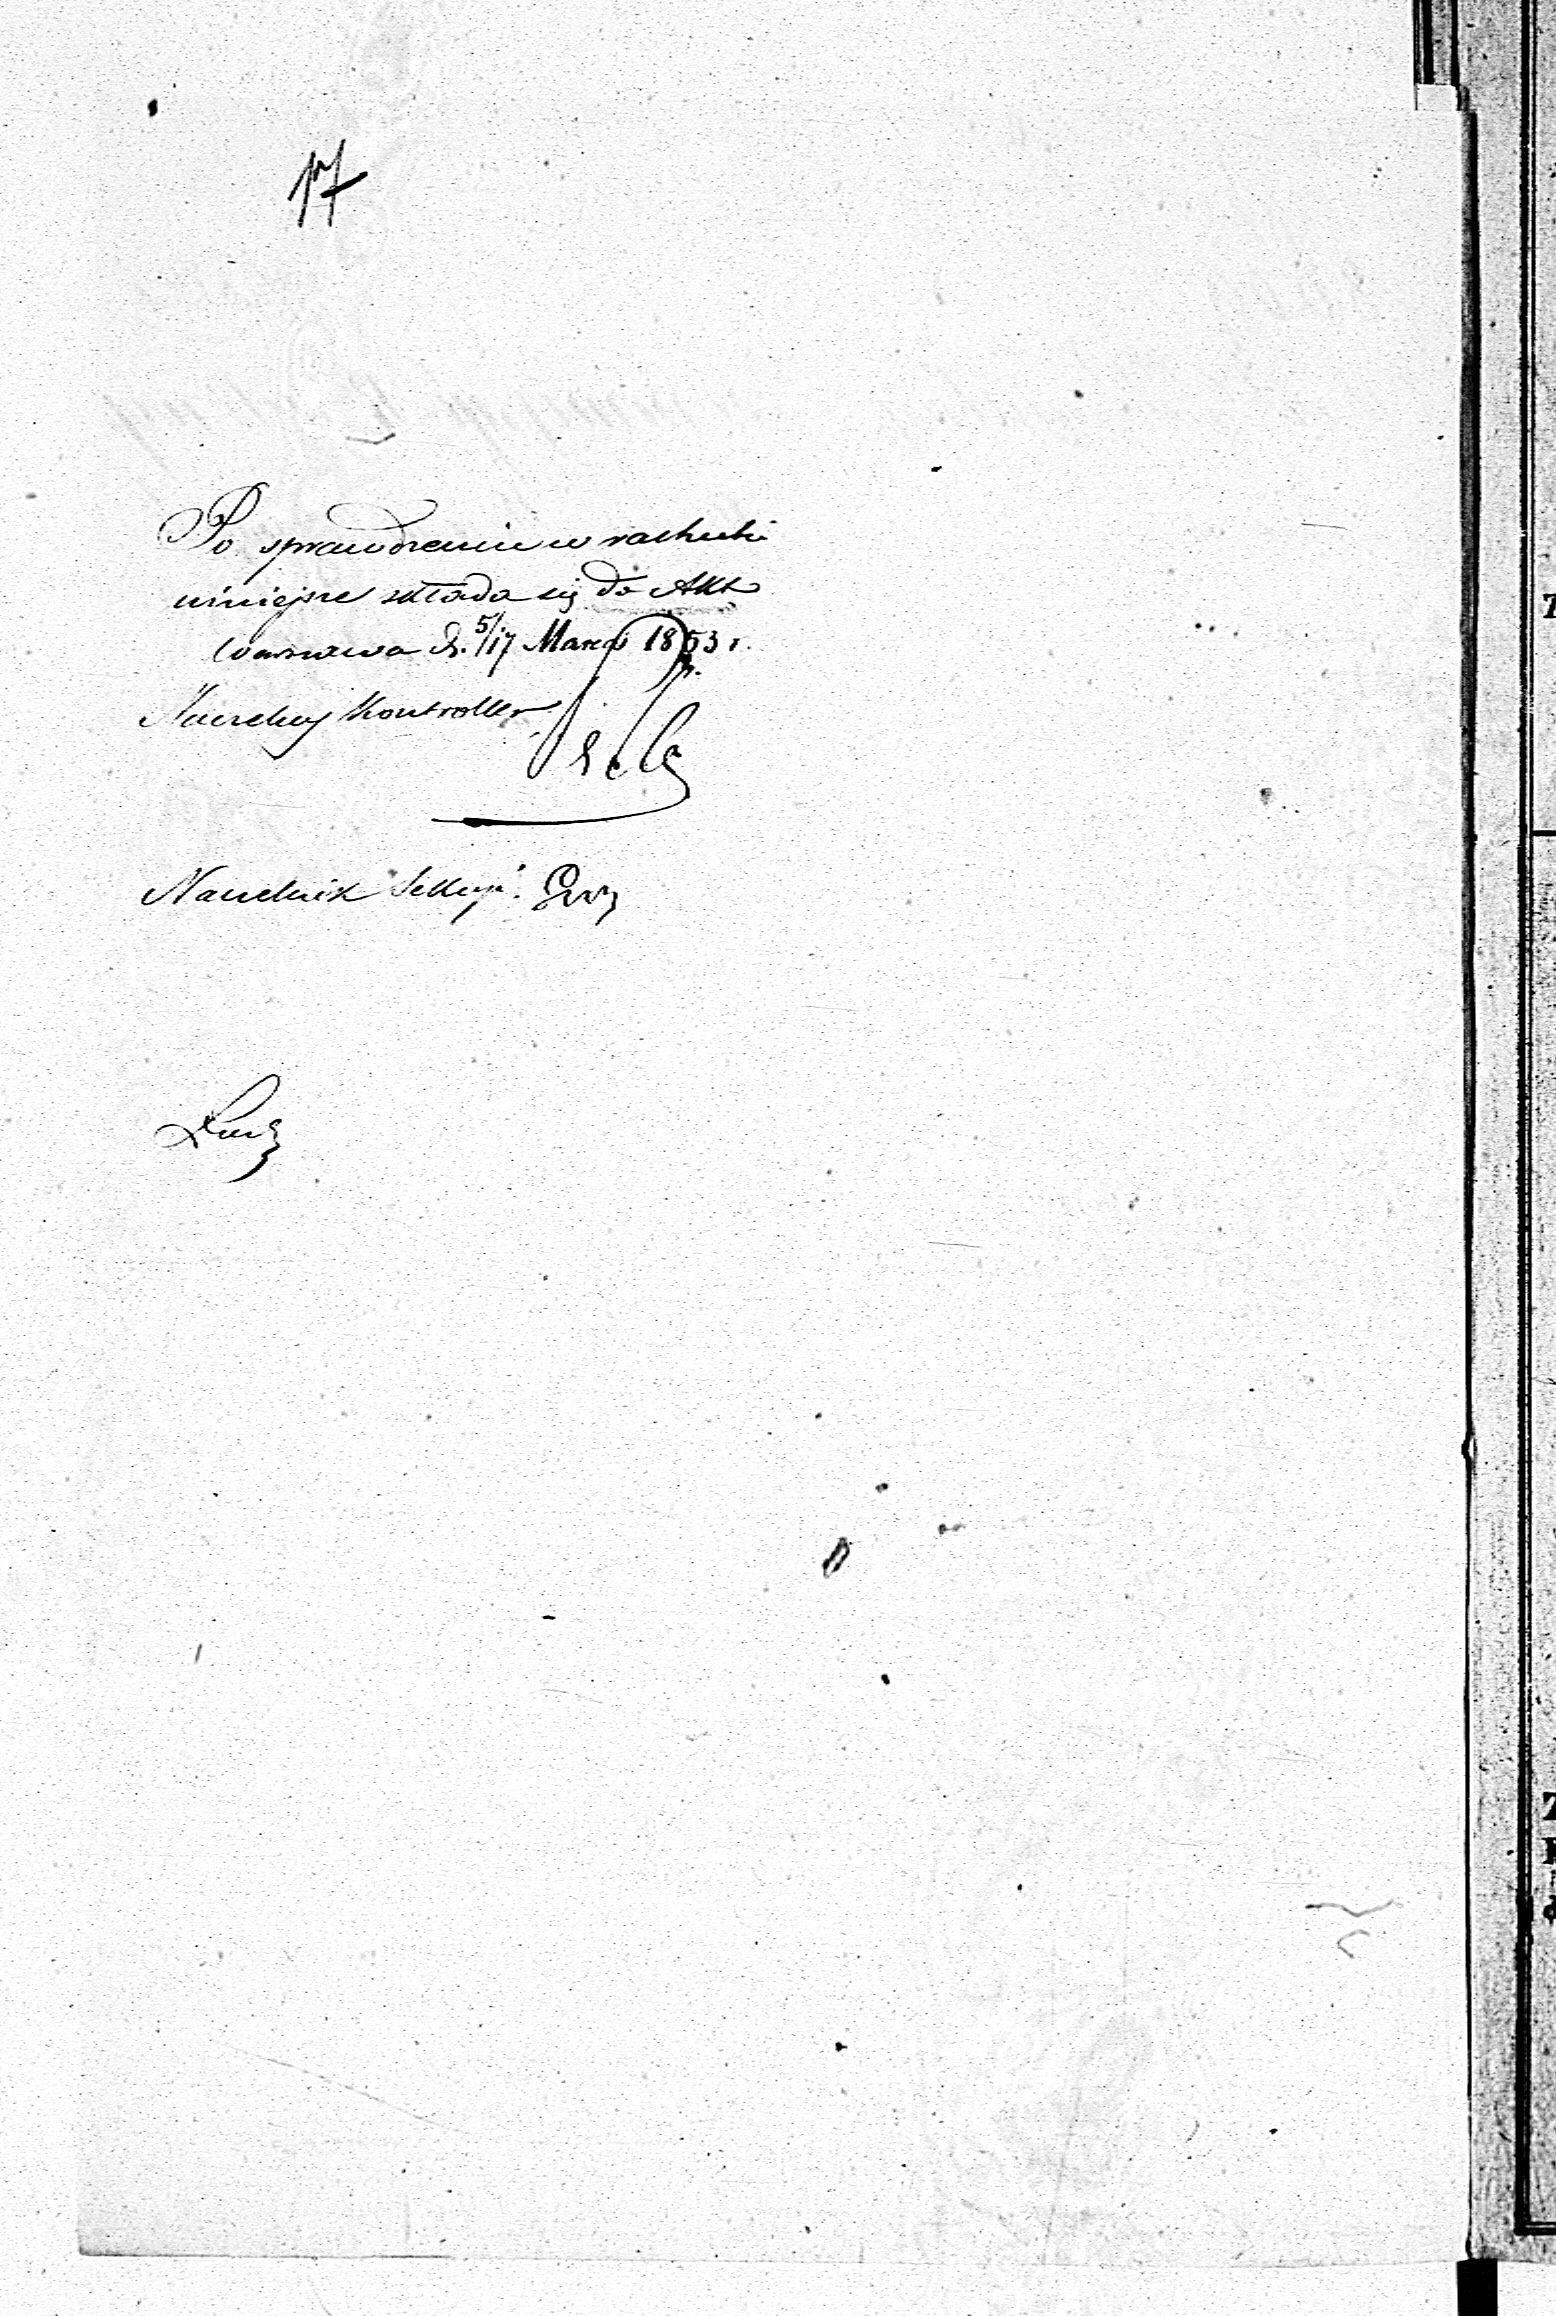 17
Po sprawdzeniu w rachubie
niniejsze składa się do Akt
Warszawa d. 5/17 Marca 1853 r.
Naczelny Kontroller
Naczelnik Sekcyi